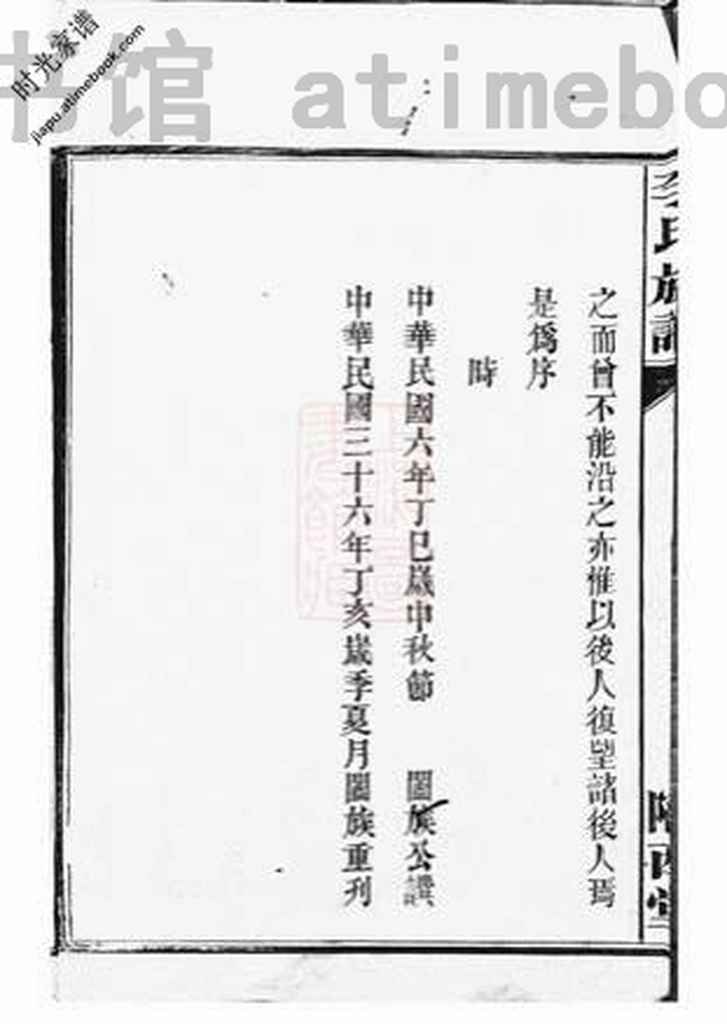 时光家谱
jiapu.atimebook.com
书馆 atimebo
李氏族譜
隴西堂
之而曾不能沿之亦惟以後人復望諸後人焉
是爲序
時
中華民國六年丁巳歲中秋節 闔族公譔
中華民國三十六年丁亥歲季夏月闔族重刊